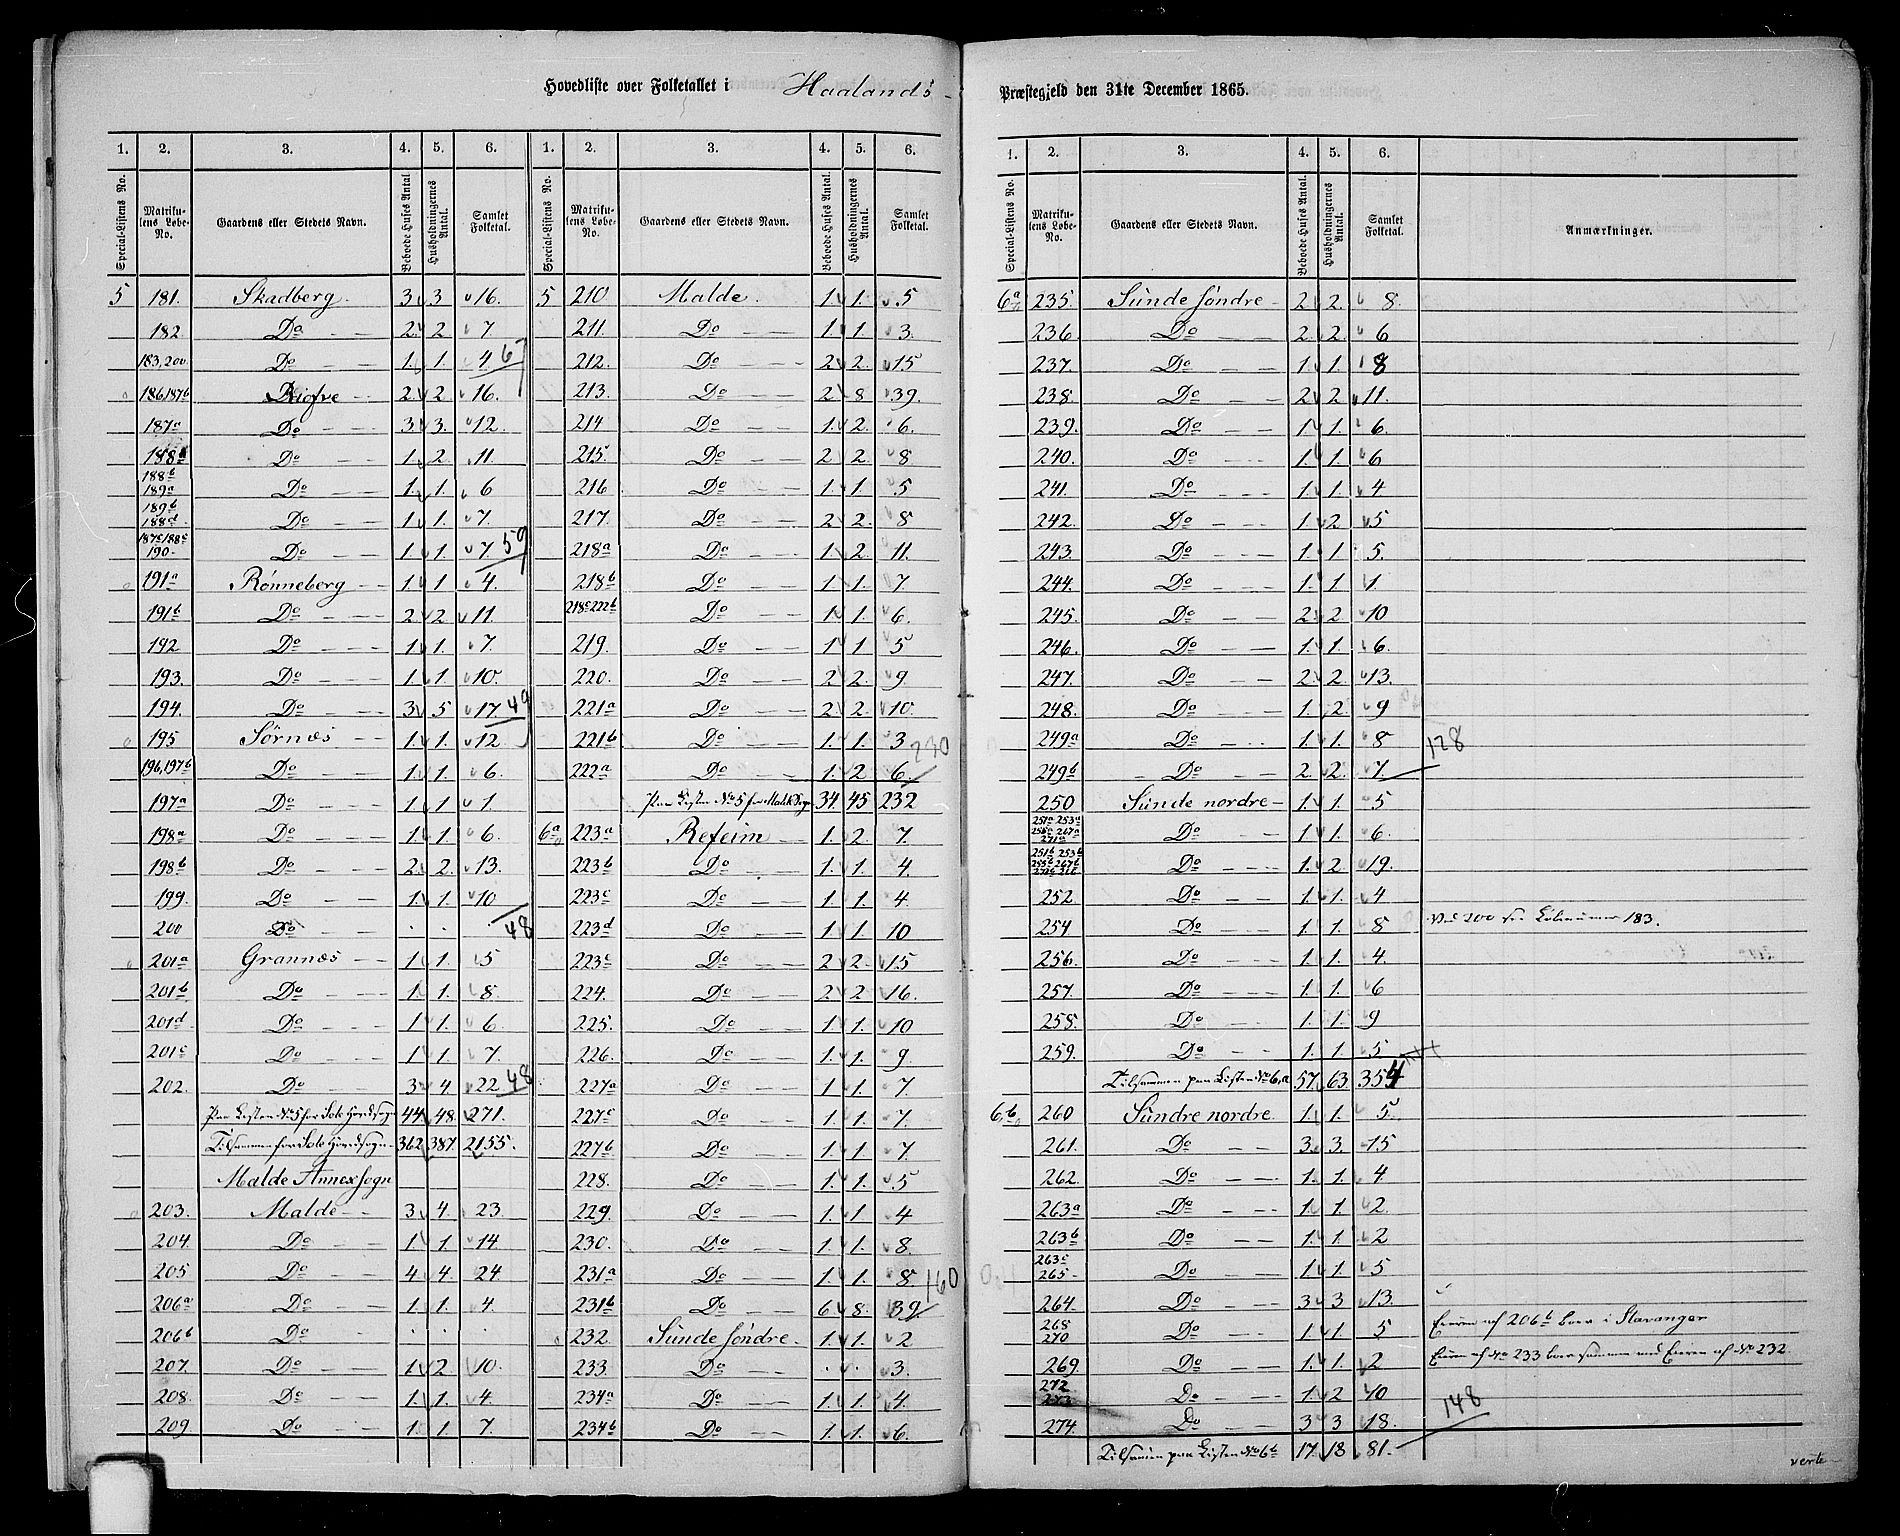 Hovedliste over Folketallet i Haalands Præstegjeld den 31te December 1865.
1. 2. 3. 4. 5. 6. 1. 2. 3. 4. 5. 6.
Special-Listens No. Matrikulens Løbe-No. Gaardens eller Stedets Navn. Beboede Huses Antal. Husholdningernes Antal. Samlet Folketal. Special-Listens No. Matrikulens Løbe-No. Gaardens eller Stedets Navn. Beboede Huses Antal. Husholdningernes Antal. Samlet Folketal.
5 181. Skadberg. 3 3 16. 5 210 Malde. 1 1. 5
182. Do 2. 2. 7. 211. Do 1. 1 3.
183,200. Do 1. 1. 4 67 212. Do 2 2. 15
186,187b Riofre 2. 2 16. 213. Do 2 8 39.
187a Do 3 3. 12. 214 Do 1. 2. 6.
188a Do 1. 2. 11. 215. Do 2 2. 8
188b 189a Do 1. 1. 6 216 Do 1. 1. 5
189b 188d Do 1. 1. 7. 217. Do 2 2. 8
187c 188c 190 Do 1. 1. 7. 59 218a Do 1. 2. 11.
191a Rønneberg 1. 1 4. 218b Do 1. 1. 7
191b Do 2 2 11. 218c 222b Do 1. 1. 6.
192 Do 1. 1. 7. 219. Do 1 1 5
193. Do 1. 1. 10. 220. Do 2 2. 9
194. Do 3. 5 17 49 221a Do 2. 2. 10.
195 Sørnæs 1. 1. 12. 221b Do 1. 1. 3 230
196,197b Do 1. 1. 6. 222a Do 1. 2 6.
197a Do 1 1 1. Paa Listen No 5 for Malde Sogn 34. 45 232
198a Do 1. 1. 6. 6a 223a Refeim 1. 2. 7.
198b Do 2. 2. 13. 223b Do 1. 1. 4
199. Do 1. 1. 10 223c Do 1. 1 4
200 Do . . . 48 223d Do 1. 1. 10
201a Grannæs 1. 1. 5 223e Do 2 2. 15
201b Do 1. 1. 8. 224. Do 2 2 16.
201d Do 1. 1. 6 225. Do 1. 1. 10
201c Do 1. 1. 7. 226. Do 1. 1. 9
202. Do 3. 4. 22 48 227a Do 1. 1. 7
Paa Listen No 5 for Sole Hovedsogn 44. 48. 271. 227c Do 1. 1. 7.
Tilsammen for Sole Hovedsogn 362 387 2155. 227b Do 1. 1. 7
Malde Annexsogn 228. Do 1. 1. 5
203. Malde 3 4. 23 229. Do 1. 1 4
204. Do 1. 1. 14. 230. Do 1. 1. 8.
205 Do 4 4. 24 231a Do 1. 1. 8. 160
206a Do 1. 1. 4. 231b Do 6 8. 39
206b Do . . . 232. Sunde søndre 1. 1. 2
207. Do 1. 2. 10. 233. Do . . 3.
208. Do 1. 1. 4 234a Do 1. 1. 4
209. Do 1. 1. 7. 234b Do 1. 1. 6.
1. 2. 3. 4. 5. 6.
Special-Listens No. Matrikulens Løbe-No. Gaardens eller Stedets Navn. Beboede Huses Antal. Husholdningernes Antal. Samlet Folketal. Anmærkninger.
6a 235. Sunde søndre 2 2. 8.
236. Do 2. 2. 6
237. Do 1. 1. 8
238. Do 2. 2 11.
239. Do 1 1. 6.
240. Do 1. 1. 6
241. Do 1. 1. 4
242. Do 1. 2 5
243. Do 1. 1 5.
244. Do 1. 1. 1.
245. Do 2. 2 10
246. Do 1. 1. 6.
247. Do 2. 2 13.
248. Do 1. 2. 9
249a Do 1. 1. 8 128
249b Do 2. 2. 7.
250 Sunde nordre 1. 1. 5
251a 253a 255a 267a 271a Do 1. 1. 6.
251b 253b 255b 267b Do 1. 2. 19.
252. Do 1. 1. 4
254 Do 1. 1. 8 Ved 200 se Løbenummer 183.
256. Do 1. 1. 4.
257. Do 1. 1. 6
258. Do 1. 1. 9
259. Do 1. 1. 5
Tilsammen paa Listen No 6,a 57. 63. 354
6,b 260 Sundre nordre. 1. 1. 5.
261. Do 3. 3. 15
262. Do 1. 1. 4
263a Do 1. 1 2.
263b Do 1. 1. 2
263c 265 Do 1. 1. 5
264. Do 3 3 13.
268 270 Do 1. 1. 5 Eieren af 206b boer i Stavanger
269 Do 1. 1. 2 Eieren af No 233 boer sammen med Eieren af No 232.
272 273 Do 1. 2 10
274. Do 3 3 18. 148
Tilsammen paa Listen No 6b 17 18 81.
verte